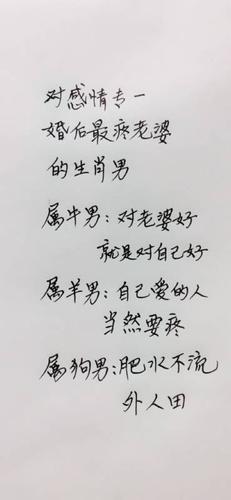 对感情专一
婚后最疼老婆
的生肖男
属牛男:对老婆好
就是对自己好
属羊男:自己爱的人
当然要疼
属狗男:肥水不流
外人田